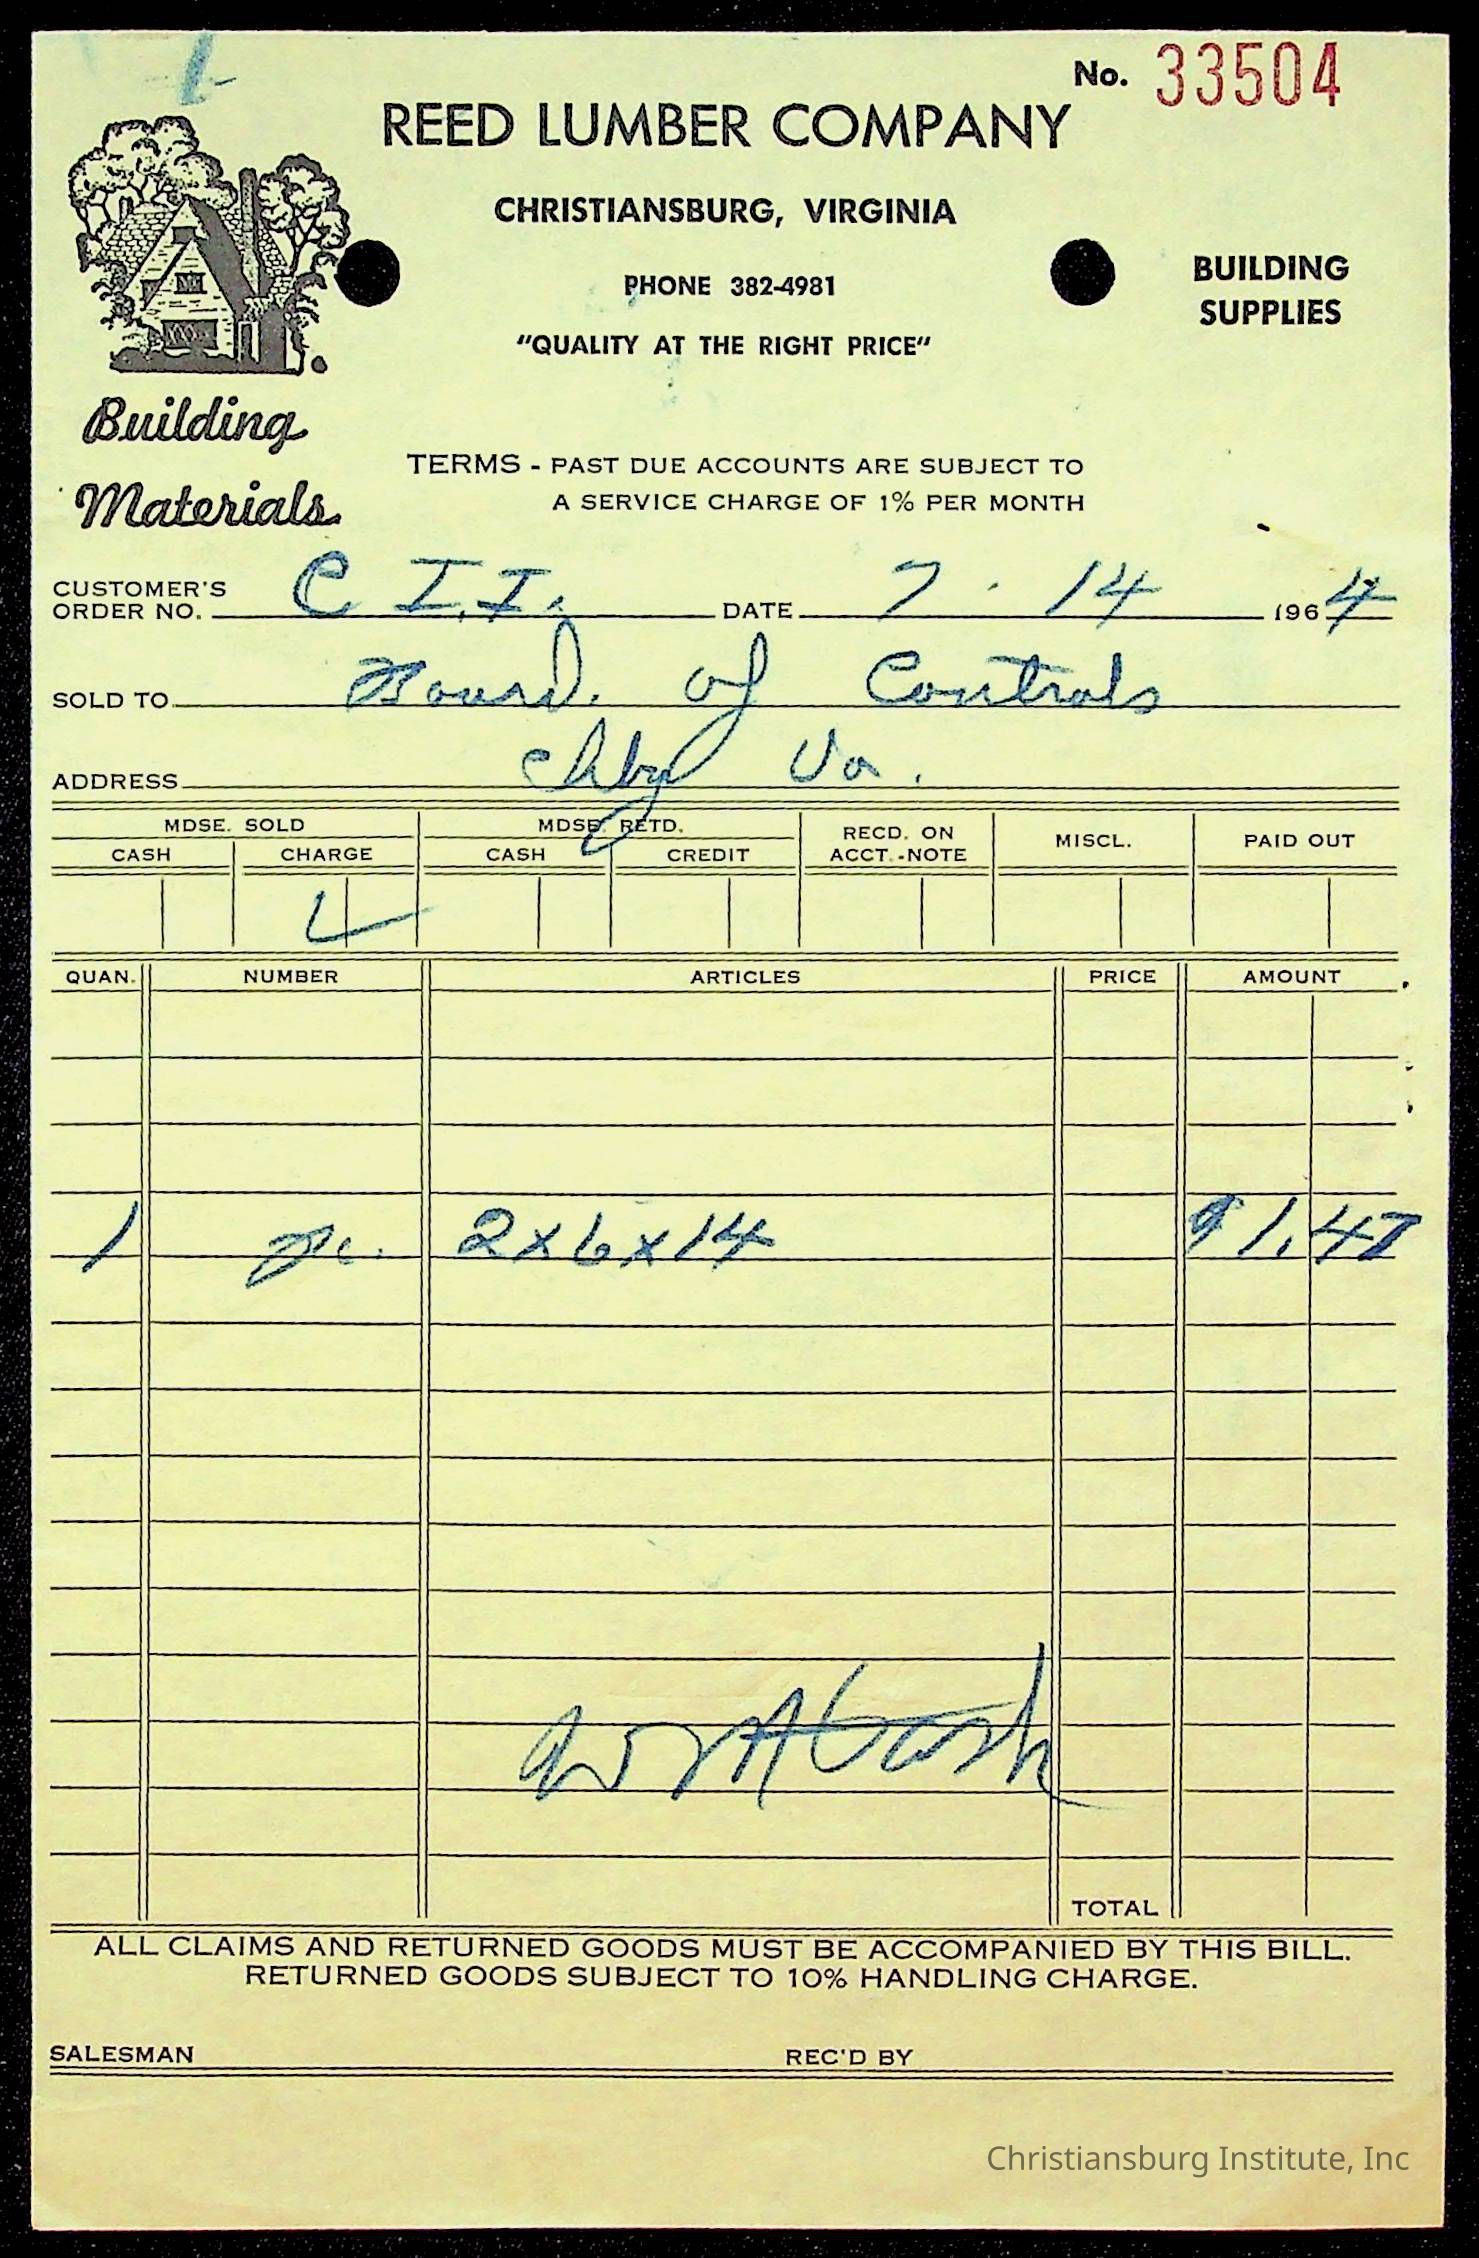 No. 33504
REED LUMBER COMPANY
CHRISTIANSBURG, VIRGINIA
PHONE 382-4981
"QUALITY AT THE RIGHT PRICE"
BUILDING
SUPPLIES
Building
Materials
TERMS - PAST DUE ACCOUNTS ARE SUBJECT TO
A SERVICE CHARGE OF 1% PER MONTH
CUSTOMER'S
ORDER NO. C I.I. DATE 7 - 14 1964
SOLD TO Board of Controls
ADDRESS Va.
MDSE. SOLD MDSE. RETD. RECD. ON ACCT.-NOTE MISCL. PAID OUT
CASH CHARGE CASH CREDIT
QUAN. NUMBER ARTICLES PRICE AMOUNT
1 pc. 2x6x14 $1.47
TOTAL
ALL CLAIMS AND RETURNED GOODS MUST BE ACCOMPANIED BY THIS BILL.
RETURNED GOODS SUBJECT TO 10% HANDLING CHARGE.
SALESMAN REC'D BY
Christiansburg Institute, Inc